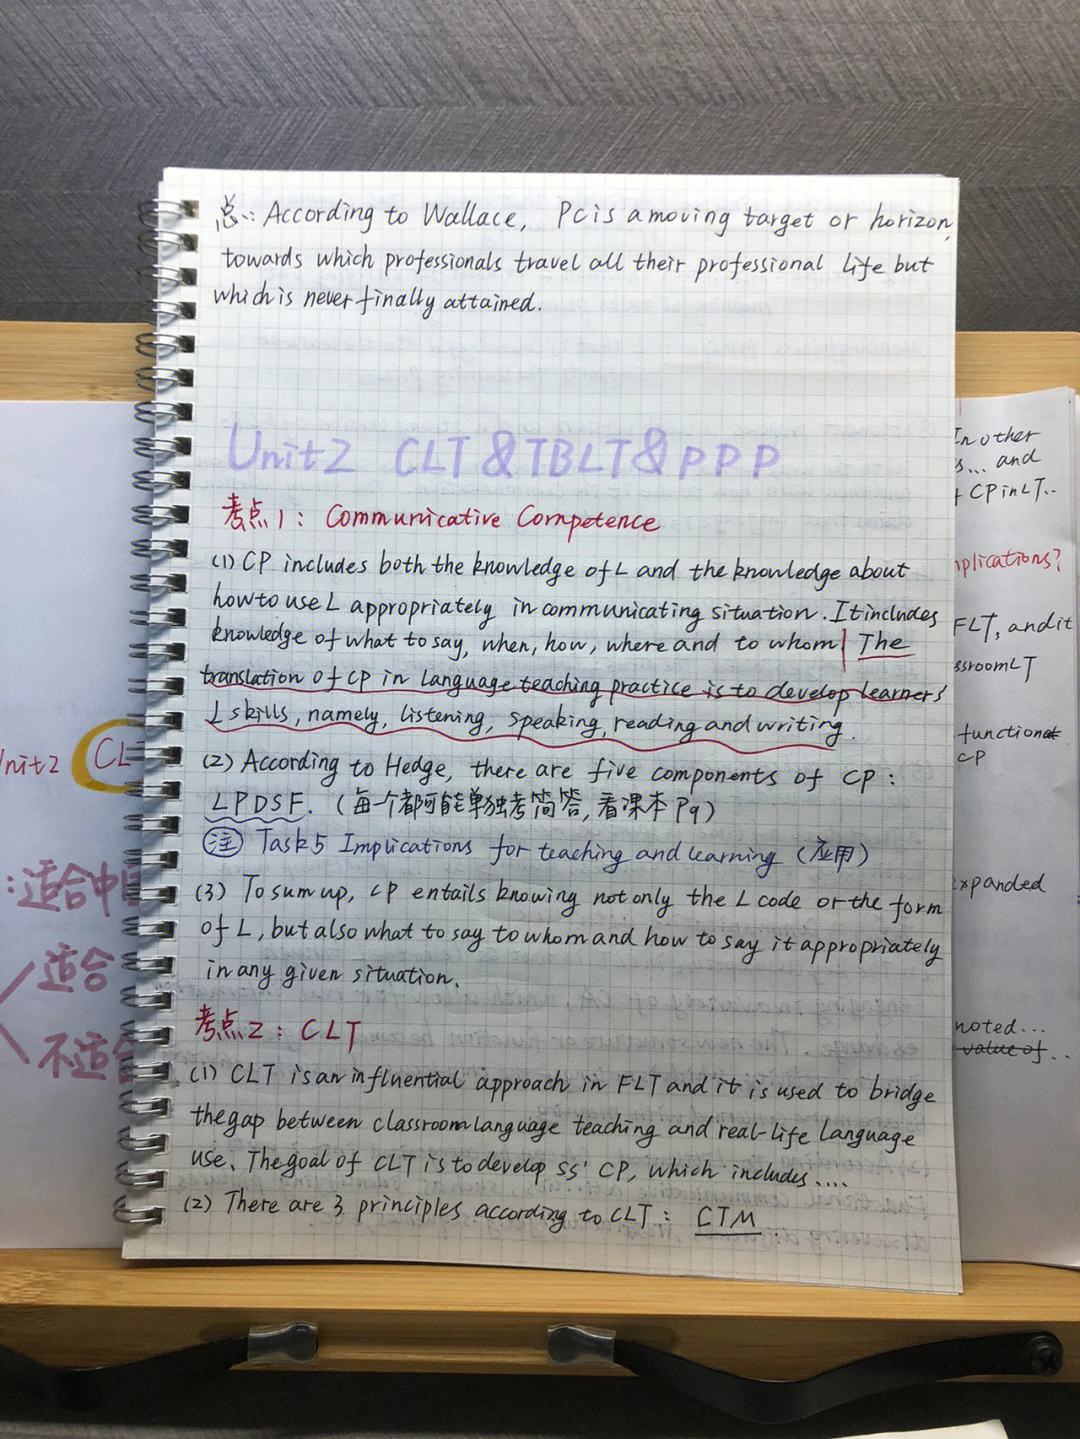 总:According to Wallace, Pc is a moving target or horizon,
towards which professionals travel all their professional life but
which is never finally attained.
Unit2 CLT&TBLT&PPP
考点1: Communicative Competence
(1) CP includes both the knowledge of L and the knowledge about
how to use L appropriately in communicating situation. It includes
knowledge of what to say, when, how, where and to whom The
translation of CP in language teaching practice is to develop learners'
L skills, namely, listening, speaking, reading and writing.
(2) According to Hedge, there are five components of CP:
LPDSF. (每个都可能单独考简答,看课本P9)
注 Task5 Implications for teaching and learning (应用)
(3) To sum up, CP entails knowing not only the L code or the form
of L, but also what to say to whom and how to say it appropriately
in any given situation.
考点2: CLT
(1) CLT is an influential approach in FLT and it is used to bridge
the gap between classroom language teaching and real-life language
use. The goal of CLT is to develop ss' CP, which includes....
(2) There are 3 principles according to CLT: CTM
Unit2 CL
:适合中
适合
不适合
In other
s... and
CP in LT..
mplications?
FLT, and it
ssroom LT
function
CP
expanded
noted...
value of..